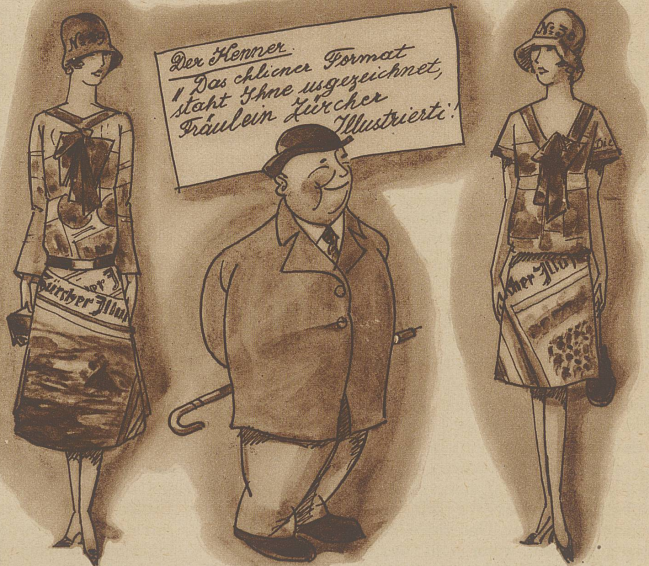 Der Kenner.
" Das chliener Format
staht Ihne usgezeichnet,
Fräulein Zürcher
Illustrierti!"
ürcher Illu
cher Illu
Die